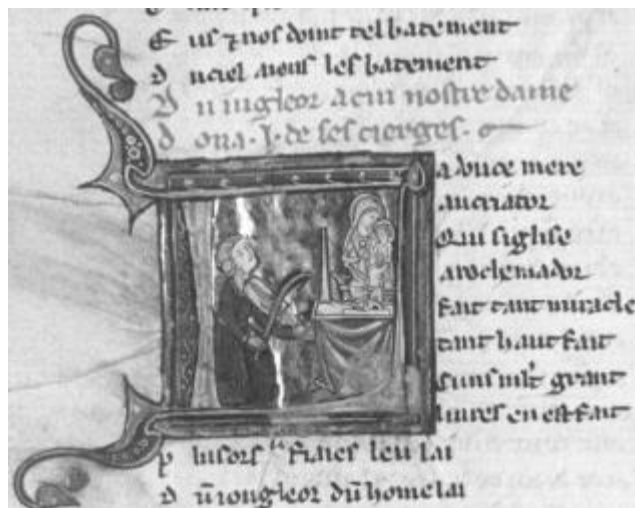 E us ⁊ nos doint tel batement
Q uciel auons les batement
D un iugleor a cui nostre dame
d ona .J. de ses cierges.
a douce mere
au criator
Qui siglise
a rochemador
fait tant miracle
tant haut fait
C uns mlt grant
liures en est fait
P lusors fraies leu lai
D ũ iougleor dũ home lai